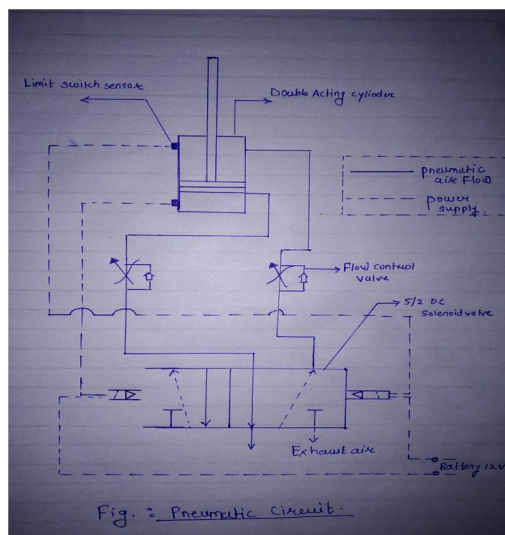 Limit switch sensor
Double Acting cylinder
pneumatic
air Flow
power
supply.
Flow control
valve
5/2 DC
Solenoid valve
Exhaust air.
Battery 12V
Fig. : Pneumatic Circuit.